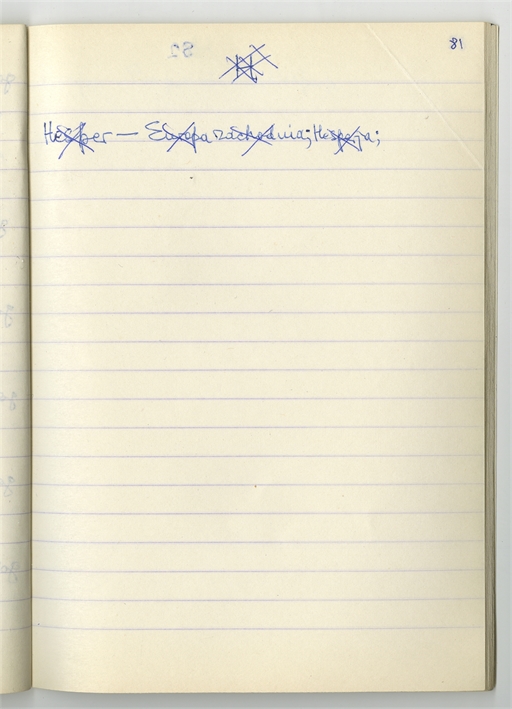 81
H
Hesper — Europa zachodnia; Hesperja;